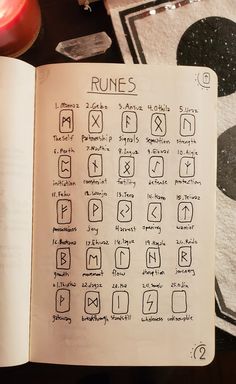 RUNES
1. Mannaz 2. Gebo 3. Ansuz 4. Othila 5. Uruz
The Self Partnership signals separation strength
6. Perth 7. Nauthiz 8. Inguz 9. Eihwaz 10. Algiz
initiation constraint fertility defense protection
11. Fehu 12. Wunjo 13. Jera 14. Kano 15. Teiwaz
possessions Joy Harvest opening warrior
16. Berkana 17. Ehwaz 18. Laguz 19. 20. Raido
growth movement flow disruption journey
21. 22. Dagaz 23. Isa 24. 25. Odin
gateway breakthrough standstill wholeness unknowable
2